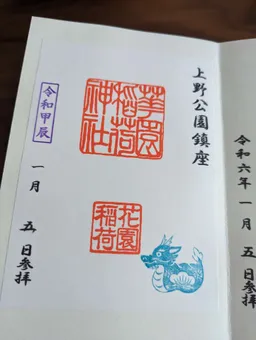 令和六年一月五日参拝
上野公園鎮座
華園
稲荷
神社
花園
稲荷
令和甲辰
一月五日参拝